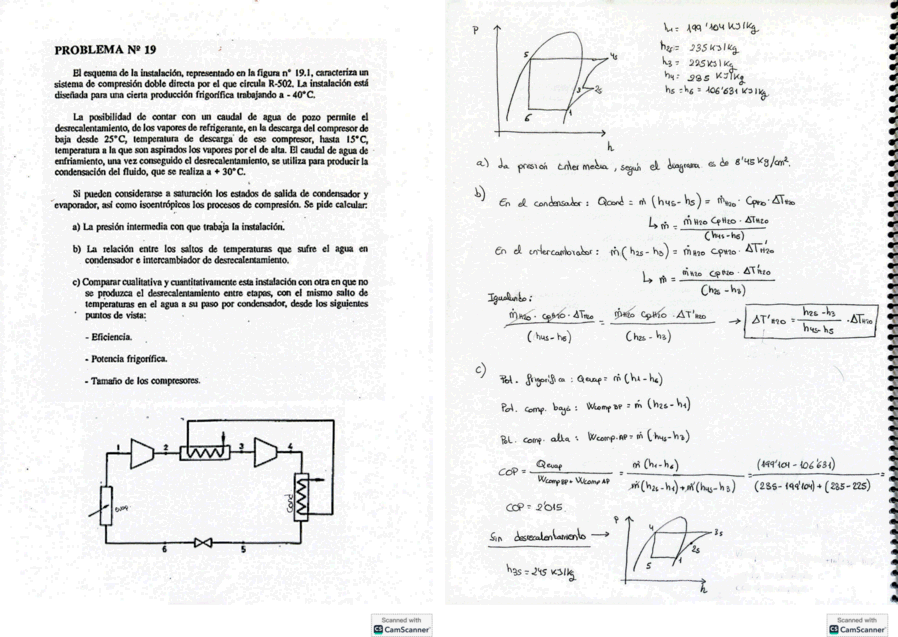 PROBLEMA Nº 19
El esquema de la instalación, representado en la figura nº 19.1, caracteriza un
sistema de compresión doble directa por el que circula R-502. La instalación está
diseñada para una cierta producción frigorífica trabajando a - 40ºC.
La posibilidad de contar con un caudal de agua de pozo permite el
desrecalentamiento, de los vapores de refrigerante, en la descarga del compresor de
baja desde 25ºC, temperatura de descarga de ese compresor, hasta 15ºC,
temperatura a la que son aspirados los vapores por el de alta. El caudal de agua de
enfriamiento, una vez conseguido el desrecalentamiento, se utiliza para producir la
condensación del fluido, que se realiza a + 30ºC.
Si pueden considerarse a saturación los estados de salida de condensador y
evaporador, así como isoentrópicos los procesos de compresión. Se pide calcular:
a) La presión intermedia con que trabaja la instalación.
b) La relación entre los saltos de temperaturas que sufre el agua en
condensador e intercambiador de desrecalentamiento.
c) Comparar cualitativa y cuantitativamente esta instalación con otra en que no
se produzca el desrecalentamiento entre etapas, con el mismo salto de
temperaturas en el agua a su paso por condensador, desde los siguientes
puntos de vista:
- Eficiencia.
- Potencia frigorífica.
- Tamaño de los compresores.
1 2 3 4
Cond
6 5
Scanned with
CS CamScanner
P
5 4s
3 2s
6 1
h
h1 = 199'104 KJ/Kg
h2s = 235 KJ/Kg
h3 = 225 KJ/Kg
h4 = 235 KJ/Kg
h5 = h6 = 106'631 KJ/Kg
a) La presión intermedia, según el diagrama es de 8'45 Kg/cm².
b) En el condensador: Qcond = ṁ (h4s - h5) = ṁH2O · CpH2O · ΔTH2O
↳ ṁ = ṁH2O CpH2O · ΔTH2O / (h4s - h5)
En el intercambiador: ṁ (h2s - h3) = ṁH2O CpH2O · ΔT'H2O
↳ ṁ = ṁH2O CpH2O · ΔT'H2O / (h2s - h3)
Igualando:
ṁH2O · CpH2O · ΔTH2O / (h4s - h5) = ṁH2O CpH2O · ΔT'H2O / (h2s - h3) → ΔT'H2O = h2s - h3 / h4s - h5 · ΔTH2O
c)
Pot. frigorífica: Qevap = ṁ (h1 - h6)
Pot. comp. baja: Wcomp BP = ṁ (h2s - h1)
Pot. comp. alta: Wcomp. AP = ṁ (h4s - h3)
COP = Qevap / Wcomp BP + Wcomp AP = ṁ (h1 - h6) / ṁ (h2s - h1) + ṁ (h4s - h3) = (199'104 - 106'631) / (235 - 199'104) + (235 - 225) =
COP = 2'015
Sin desrecalentamiento →
h3s = 245 KJ/Kg
P
4 3s
2s
5 1
h
Scanned with
CS CamScanner